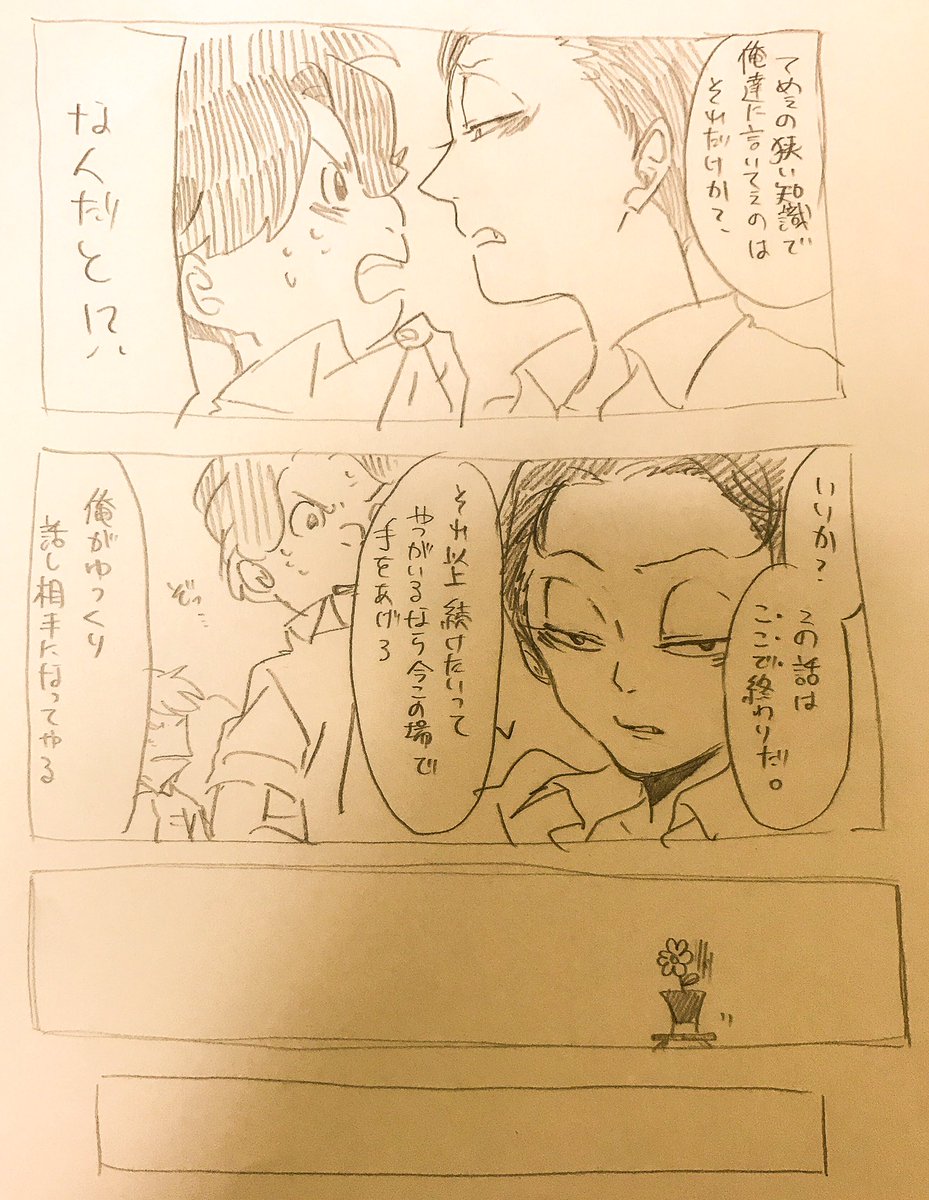 てめぇの狭い知識で
俺達に言いてぇのは
それだけか?
なんだと!?
いいか?
この話は
ここで終わりだ。
それ以上続けたいって
やつがいるなら今この場で
手をあげろ
ぞっ…
俺がゆっくり
話し相手になってやる